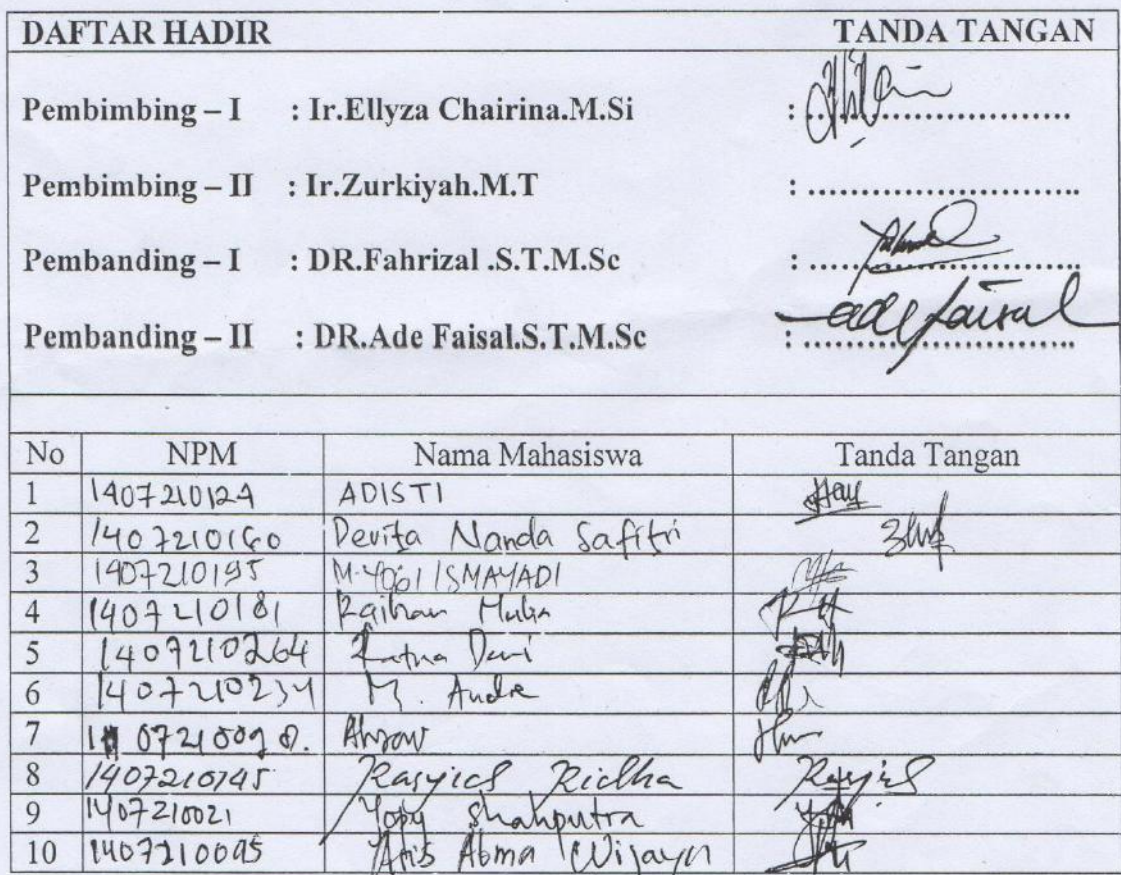 DAFTAR HADIR TANDA TANGAN
Pembimbing – I : Ir.Ellyza Chairina.M.Si : ..........................
Pembimbing – II : Ir.Zurkiyah.M.T : ..........................
Pembanding – I : DR.Fahrizal .S.T.M.Sc : ..........................
Pembanding – II : DR.Ade Faisal.S.T.M.Sc : ..........................
ade faisal
No NPM Nama Mahasiswa Tanda Tangan
1 1407210124 ADISTI
2 1407210160 Devita Nanda Safitri
3 1407210195 M. YOGI ISMAYADI
4 1407210181 Raihan Mulia
5 1407210264 Ratna Dewi
6 1407210234 M. Andre
7
8 1407210145 Rasyid Ridha Rasyid
9 1407210021 Yopy Shahputra
10 1407210095 Wijaya